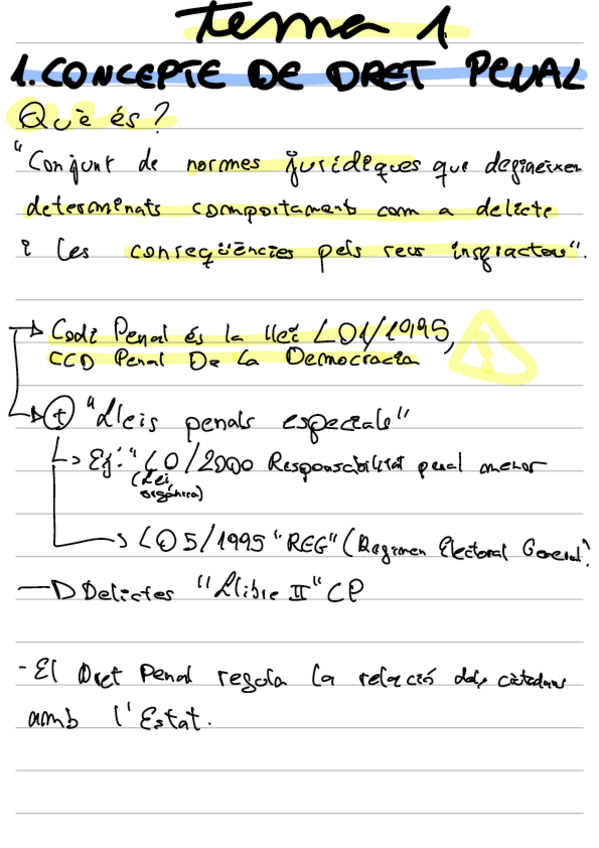 tema 1
1. CONCEPTE DE DRET PENAL
Què és?
"Conjunt de normes jurídiques que defineixen
determinats comportaments com a delicte
i les conseqüències pels seus infractors".
Codi Penal és la llei LO1/1995,
CCD Penal De La Democracia
+ "Lleis penals especials"
Ej: "LO/2000 Responsabilitat penal menor
(Lei
orgánica)
LO 5/1995 "REG" (Regimen Electoral General)
Delictes "Llibre II" CP
- El Dret Penal regula la relació dels ciutadans
amb l'Estat.